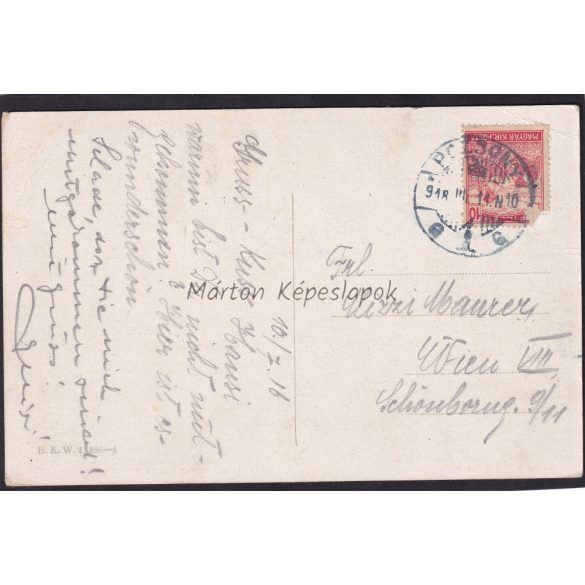 10/7.16
Gruss-Kuss Hansi
warum bist Du nicht mit-
gekommen? Hier ist es
wunderschön.
Schade, das Sie nicht
mitgekommen sind!
Gruss!
Frl.
Mizzi Maurer
Wien VIII.
Schönborng. 9/11
MAGYAR KIR. POSTA
10
POZSONY
918 14 N10
B. K. W. I. 886-4
Márton Képeslapok